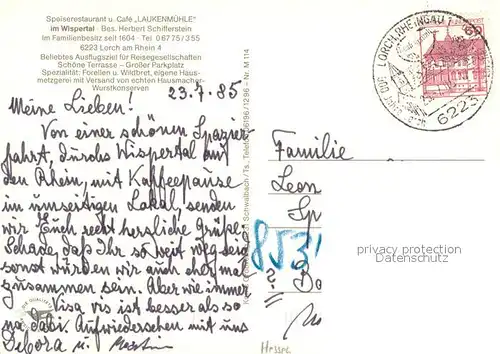 Speiserestaurant u. Café „LAUKENMÜHLE"
im Wispertal · Bes. Herbert Schifferstein
Im Familienbesitz seit 1604 · Tel 0 67 75 / 3 55
6223 Lorch am Rhein 4
Beliebtes Ausflugsziel für Reisegesellschaften
Schöne Terrasse – Großer Parkplatz
Spezialität: Forellen u. Wildbret, eigene Haus-
metzgerei mit Versand von echten Hausmacher-
Wurstkonserven
23.7.85
Meine Lieben!
Von einer schönen Spazier
fahrt, durchs Wispertal auf
den Rhein, mit Kaffeepause
im umseitigen Lokal, senden
wir Euch recht herzliche Grüße.
Schade, daß Ihr so weit weg seid
sonst würden wir auch eher mal
zusammen sein. Aber wie immer
Visa vis ist besser als so
na dabi. Aufwiedersehen mit uns
Debora u. Martin
Schwalbach/Ts., Telefon 06196/1296 – Nr. M 114
LORCH, RHEINGAU
6223
60
Familie
Leon
Sp
853
? Bo
privacy protection
Datenschutz
Hessen